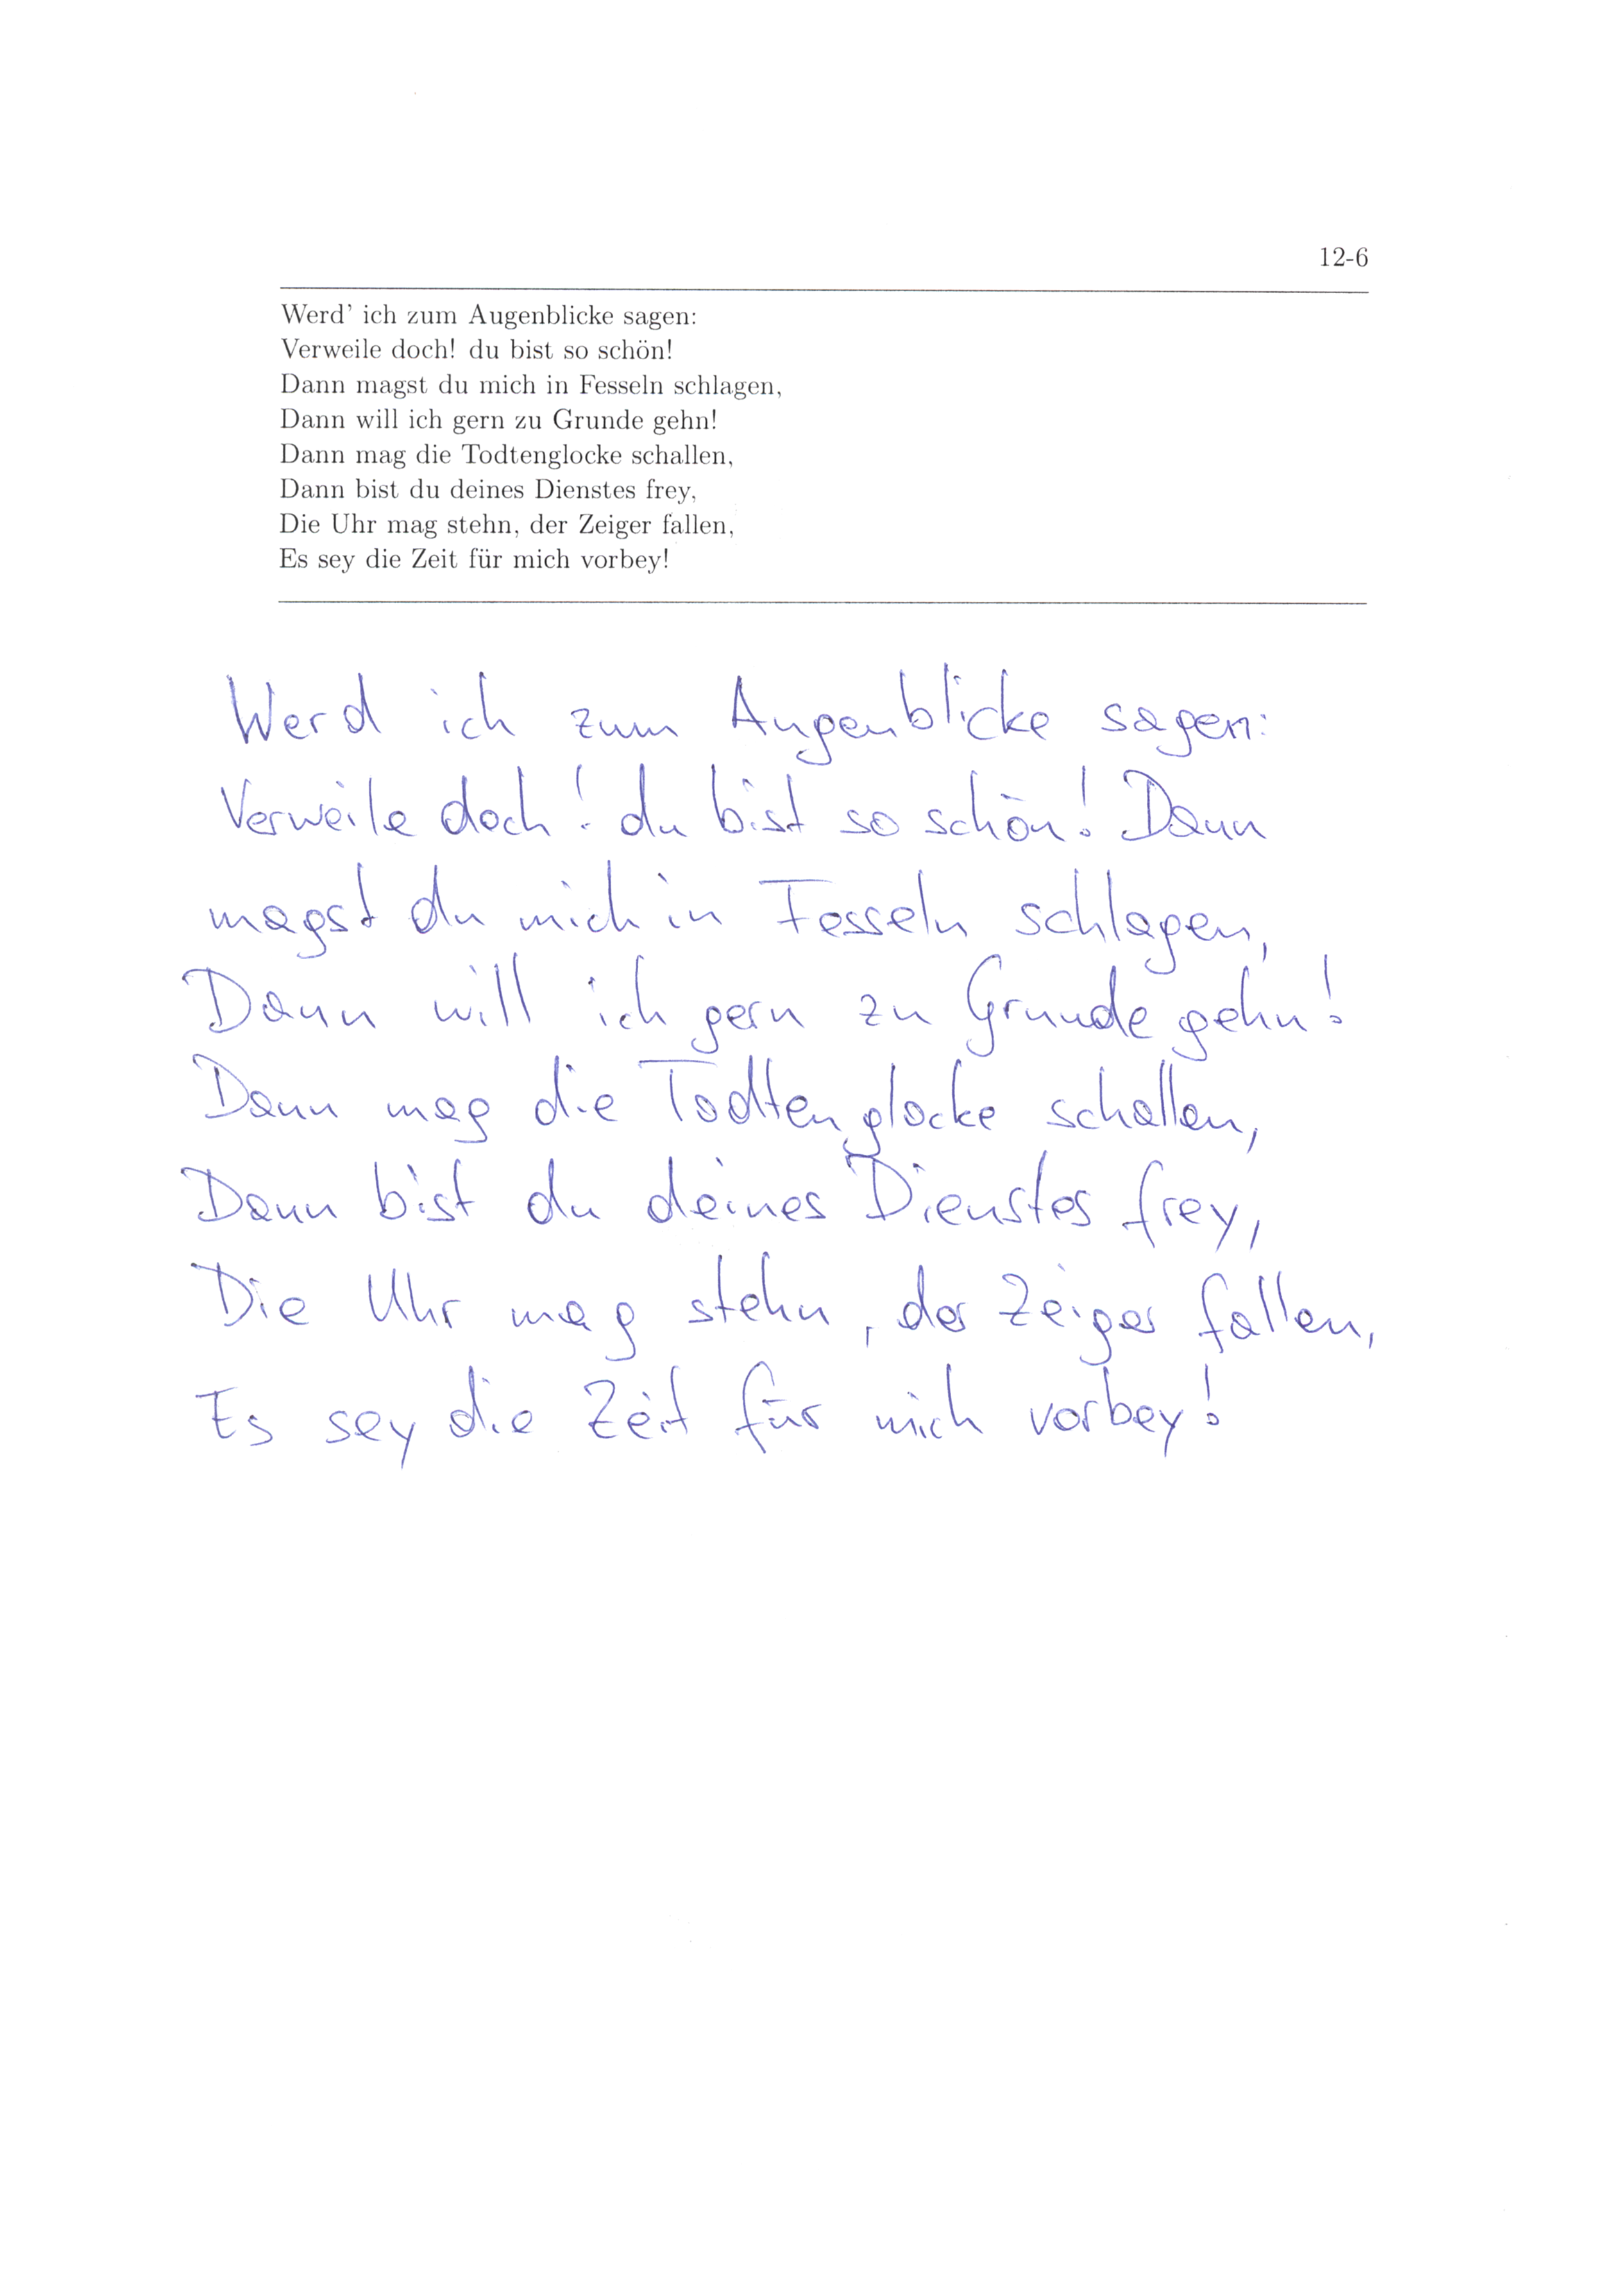 12-6
Werd' ich zum Augenblicke sagen:
Verweile doch! du bist so schön!
Dann magst du mich in Fesseln schlagen,
Dann will ich gern zu Grunde gehn!
Dann mag die Todtenglocke schallen,
Dann bist du deines Dienstes frey,
Die Uhr mag stehn, der Zeiger fallen,
Es sey die Zeit für mich vorbey!
Werd ich zum Augenblicke sagen:
Verweile doch! du bist so schön! Dann
magst du mich in Fesseln schlagen,
Dann will ich gern zu Grunde gehn!
Dann mag die Todtenglocke schallen,
Dann bist du deines Dienstes frey,
Die Uhr mag stehn, der Zeiger fallen,
Es sey die Zeit für mich vorbey!